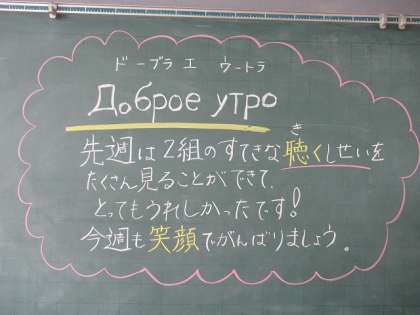 ドーブラ エ ウートラ
Доброе утро
き
先週は2組のすてきな聴くしせいを
たくさん見ることができて、
とってもうれしかったです!
今週も笑顔でがんばりましょう。